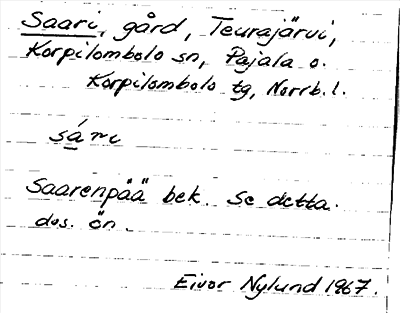 Saari, gård, Teurajärvi,
Korpilombolo sn, Pajala o.
Korpilombolo tg, Norrb. l.
Saarenpää bek. Se detta.
dos. ön.
Eivor Nylund 1967.